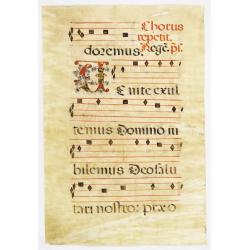 Chorus
repetit.
doremus. Regē. ps.
Venite exul
temus Domino iu
bilemus Deo salu
tari nostro: præo